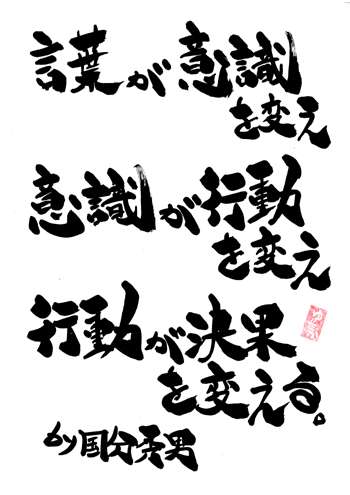 言葉が意識
を変え
意識が行動
を変え
行動が決果
を変える。
by国分秀男